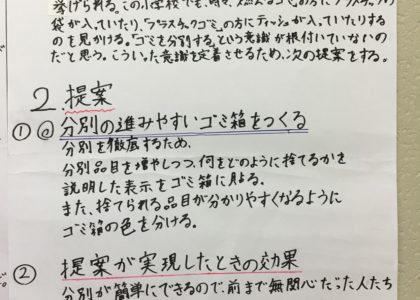 挙げられる。この小学校でも、時々、「燃えるゴミ」の方にプラスチックの
袋が入っていたり、「プラスチックゴミ」の方にティッシュが入っていたりする
のを見かける。「ゴミを分別する」という意識が根付いていないの
だと思う。こういった意識を定着させるため、次の提案をする。
2. 提案
① @ 分別の進みやすいゴミ箱をつくる
分別を徹底するため、
分別品目を増やしつつ、何をどのように捨てるかを
説明した表示をゴミ箱に貼る。
また、捨てられる品目が分かりやすくなるように
ゴミ箱の色を分ける。
② 提案が実現したときの効果
分別が簡単にできるので、前まで無関心だった人たち